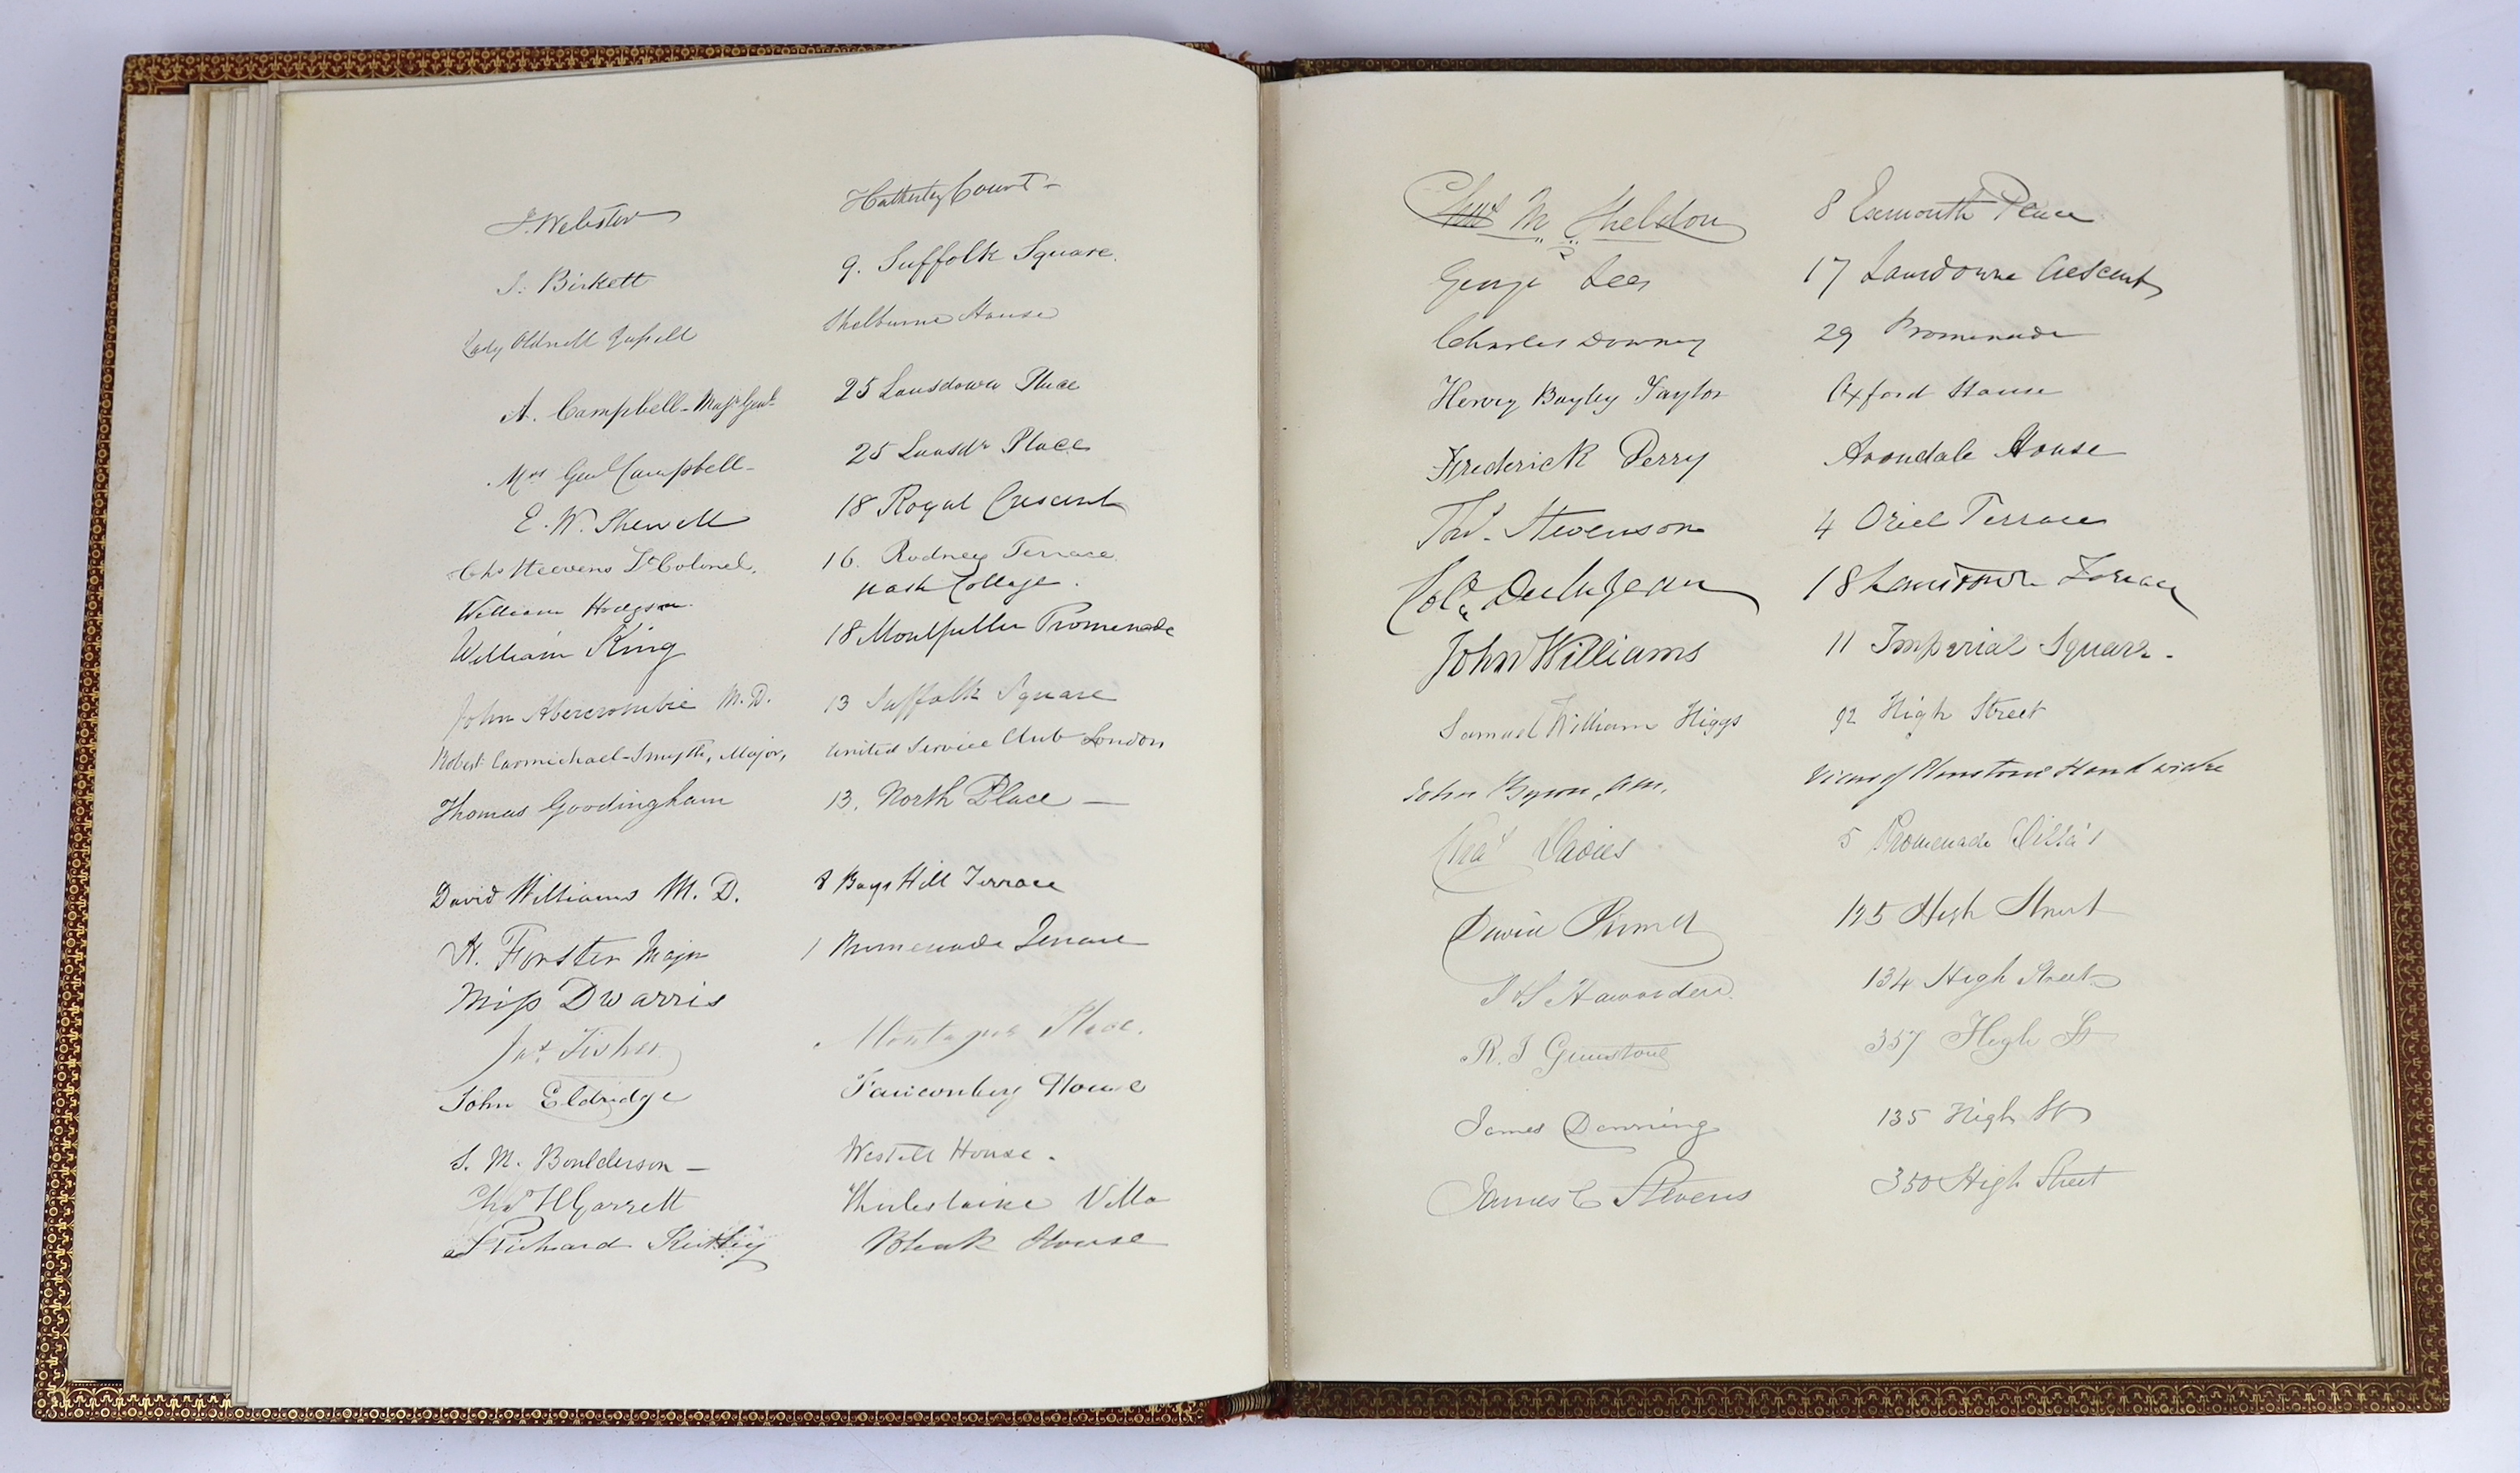 J. Webster Hatherley Court -
J. Birkett 9. Suffolk Square.
Lady Shelburne House
A. Campbell - Majr Genl. 25 Lansdown Place
Mrs Genl Campbell - 25 Lansdn Place
E. W. Shewell 18 Royal Crescent
Chs Steevens Lt Colonel. 16. Rodney Terrace.
William Hodgson. Nash Cottage.
William King 18 Montpellier Promenade
John Abercrombie M.D. 13 Suffolk Square
Robert Carmichael-Smyth, Major, United Service Club London
Thomas Goodingham 13. North Place —
David Williams M.D. 8 Bays Hill Terrace
H. Forster Major 1 Promenade Terrace
Miss Dwarris
Jas. Fisher Montague Place.
John Eldridge Fauconberg House
S. M. Boulderson — Westall House.
Chs H Garrett Thirlestaine Villa
Richard Blenk House
M Sheldon 8 Exmouth Place
George Lees 17 Lansdowne Crescent
Charles Downey 29 Promenade
Henry Bayley Taylor Oxford House
Frederick Perry Avondale House
Thos. Stevenson 4 Oriel Terrace
Col. 18 Lansdown Terrace
John Williams 11 Imperial Square.
Samuel William Higgs 92 High Street
John Byron, AM. Vicar of
Chas Davies 5 Promenade Villa's
David 125 High Street
J & S Hawarden 134 High Street
R. J Grimstone 357 High St
James Downing 135 High St
James C Stevens 350 High Street